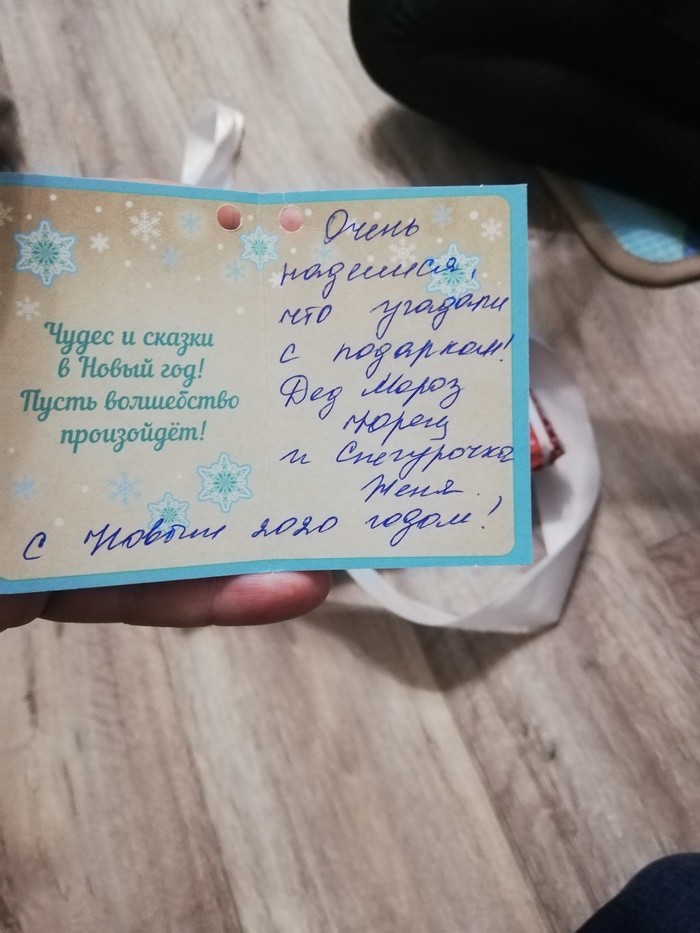 Чудес и сказки
в Новый год!
Пусть волшебство
произойдёт!
Очень
надеемся,
что угадали
с подарком!
Дед Мороз
и Снегурочка
Женя.
С Новым 2020 годом!